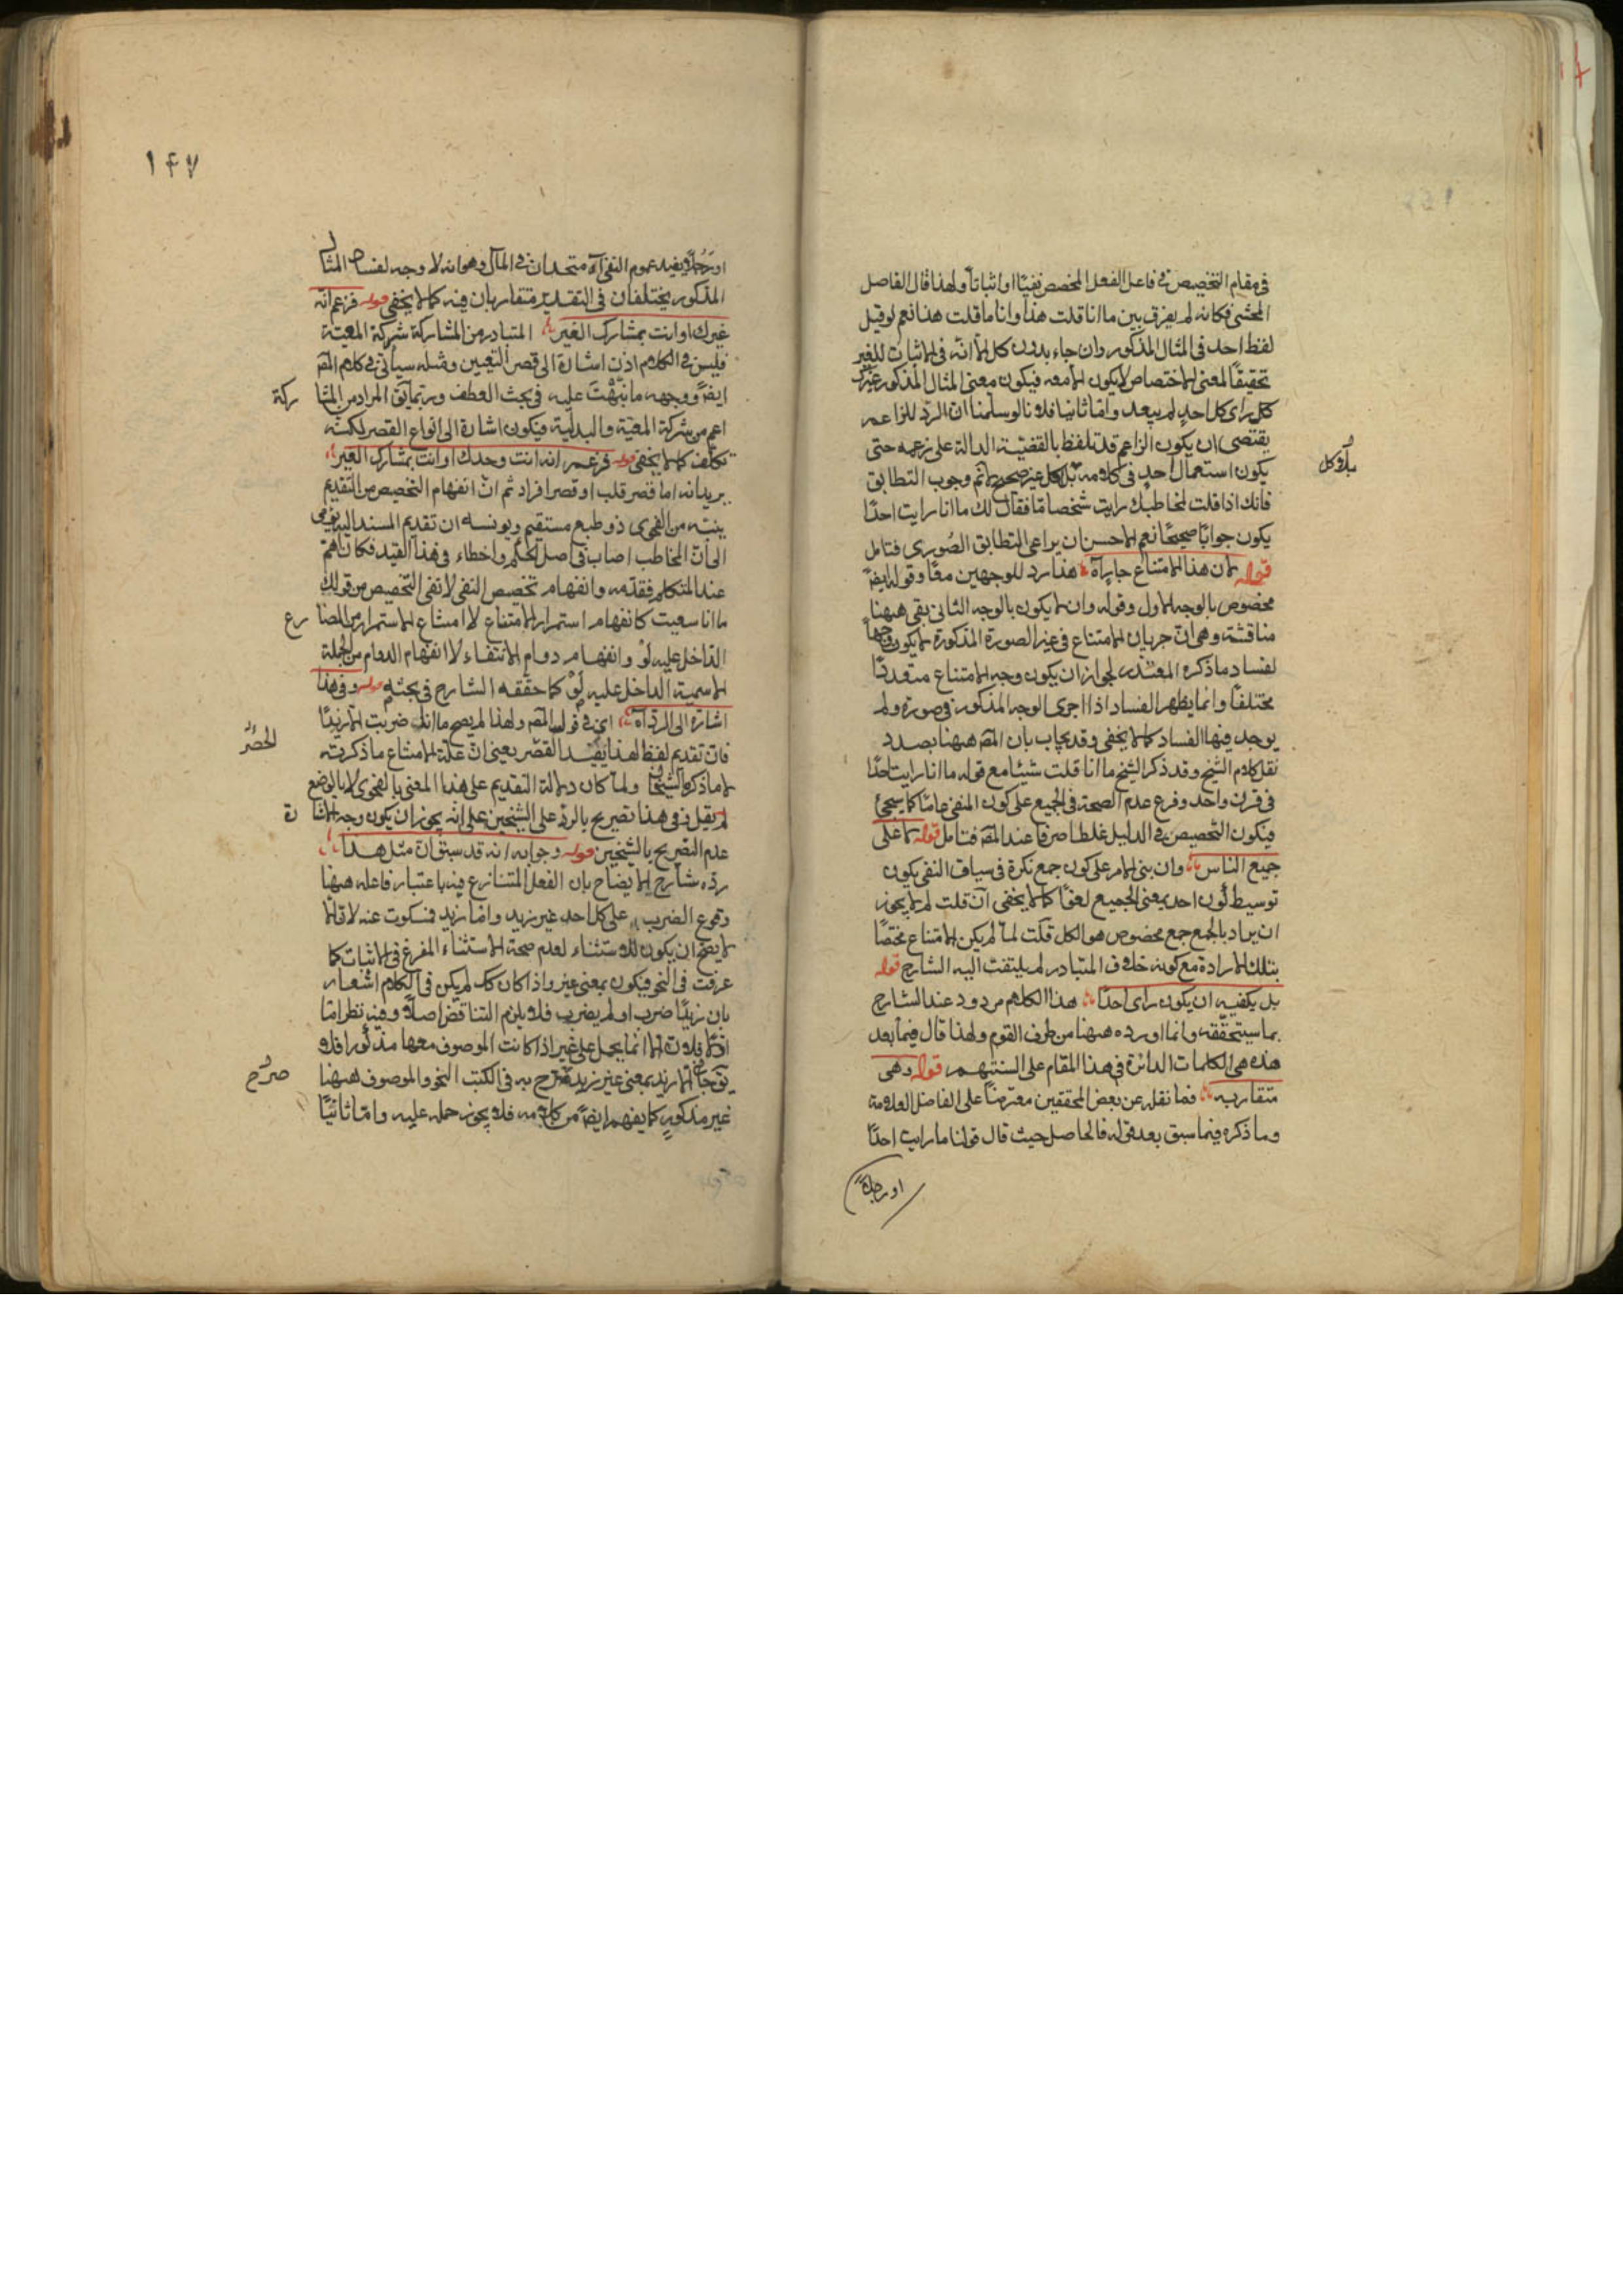 في مقام التخصيص في فاعل الفعل المخصص نفيًا او اثباتاً ولهذا قال الفاضل
المحشي فكانه لم يفرق بين ما انا قلت هذا وانا ما قلت هذا نعم لو قيل
لفظ احد في المثال المذكور وان جاء بدون كل الا انه في الاثبات للغير
تحقيقًا لمعنى الاختصاص لا يكون الا معه فيكون معنى المثال المذكور غيرك
كل راى كل احدٍ لم يبعد واما ثانيا فلانا لو سلمنا ان الرد للزاعم
يقتضى ان يكون الزاعم قد تلفظ بالقضية الدالة على زعمه حتى
يكون استعمال احدٍ في كلامه بلا كل غير صحيح لا ثم وجوب التطابق
بلا وكل
فانك اذا قلت لمخاطبك رايت شخصا ما فقال لك ما انا رايت احدًا
يكون جوابًا صحيحًا نعم الاحسن ان يراعى التطابق الصوري فتامل
قوله لان هذا الامتناع جار آه هذا رد للوجهين معًا وقوله ايضً
مخصوص بالوجه الاول وقوله وان لا يكون بالوجه الثاني بقى ههنا
مناقشة وهي ان جريان الامتناع في غير الصورة المذكورة لا يكون وجهاً
لفساد ما ذكره المعتذر لجواز ان يكون وجه الامتناع متعددًا
مختلفًا وانما يظهر الفساد اذا اجرى الوجه المذكور في صورة ولم
يوجد فيها الفساد كما لا يخفى وقد يجاب بان المصَ ههنا بصدد
نقل كلام الشيخ وقد ذكر الشيخ ما انا قلت شيئًا مع قوله ما انا رايت احدًا
في قرن واحد وفرع عدم الصحة في الجميع على كون المنفي عامًا كما سيجئ
فيكون التخصيص في الدليل غلطا صرفا عند المصَ فتامل قوله لا على
جميع الناس وان بنى الامر على كون جمع نكرة في سياق النفي يكون
توسيط كون احد بمعنى الجميع لغوًا كما لا يخفى آن قلت لم لا يجوز
ان يراد بالجمع جمع مخصوص هو الكل قلت لما لم يكن الامتناع مختصًا
بتلك الارادة مع كونه خلاف المتبادر لم يلتفت اليه الشارح قوله
بل يكفيه ان يكون راى احدًا هذا الكلام مردود عند الشارح
بما سيتحققه وانما اورده ههنا من طرف القوم ولهذا قال فيما بعد
هذه هي الكلمات الدائرة في هذا المقام على السنتهم قوله وهي
متقاربه فما نقله عن بعض المحققين معترضًا على الفاضل العلامة
وما ذكره فيما سبق بعد قوله فالحاصل حيث قال قولنا ما رايت احدًا
او رجلاً
١٤٧
او رَجُلًا يفيد عموم النفي آه متحدان في المآل وهو انه لا وجه لفساد المثال
المذكور يختلفان في التقدير متقاربان فيه كما لا يخفى قوله فزعم انه
غيرك او انت بمشارك الغير المتبادر من المشاركة شركة المعية
فليس في الكلام اذن اشارة الى قصر التعيين ومثله سيأتي في كلام المصَ
ايضً ووجهه ما نبّهتَ عليه في بحث العطف وربما يق المراد من المشا
ركة
اعم من شركة المعية والبدلية فيكون اشارة الى انواع القصر لكنه
تكلف كما لا يخفى قوله فزعم انه انت وحدك او انت بمشارك الغير
يريد انه اما قصر قلب او قصر افراد ثم ان انفهام التخصيص من التقديم
يبتنى من الفحوى ذو طبع مستقيم ويونسه ان تقديم المسند اليه يومى
الى ان المخاطب اصاب في اصل الحكم واخطاء في هذا القيد فكان اهم
عند المتكلم فقدّمه وانفهام تخصيص النفي لا نفي التخصيص من قولك
ما انا سعيت كانفهام استمرار الامتناع لا امتناع الاستمرار من المضا
رع
الداخل عليه لَوْ وانفهام دوام الانتفاء لا انفهام الدوام من الجملة
الاسمية الداخل عليه لَوْ كما حققه الشارح في بحثه قوله وفي هذا
اشارة الى الرد آه اي في قول المصَ ولهذا لم يصح ما انا ضربت الا زيدًا
فان تقديم لفظ لهذا يفيد القصر يعني ان علة الامتناع ما ذكرته
الحصر
لا ما ذكره الشيخان ولما كان دلالة التقديم على هذا المعنى بالفحوى لا بالوضع
لم يقل وفي هذا تصريح بالرد على الشيخين على انه يجوز ان يكون وجه الاشا
رة
عدم التصريح بالشيخين قوله وجوابه انه قد سبق ان مثل هذا
رده شارح الايضاح بان الفعل المتنازع فيه باعتبار فاعله ههنا
وقوع الضرب على كل احد غير زيد واما زيد فسكوت عنه لان الا
لا يصح ان يكون للاستثناء لعدم صحة الاستثناء المفرغ في الاثبات كما
عرفت في النحو فيكون بمعنى غير واذا كان كك لم يكن في الكلام اشعار
بان زيدًا ضرب او لم يضرب فلا يلزم التناقض اصلاً وفيه نظر اما
اوّلًا فلان الا انما يحمل على غير اذا كانت الموصوف معها مذكورا فلا
يق جاء الا زيد بمعنى غير زيد صرّح به في الكتب النحو والموصوف ههنا
صرّح
غير مذكورٍ كما يفهم ايضً من كلامه فلا يجوز حمله عليه واما ثانيًا